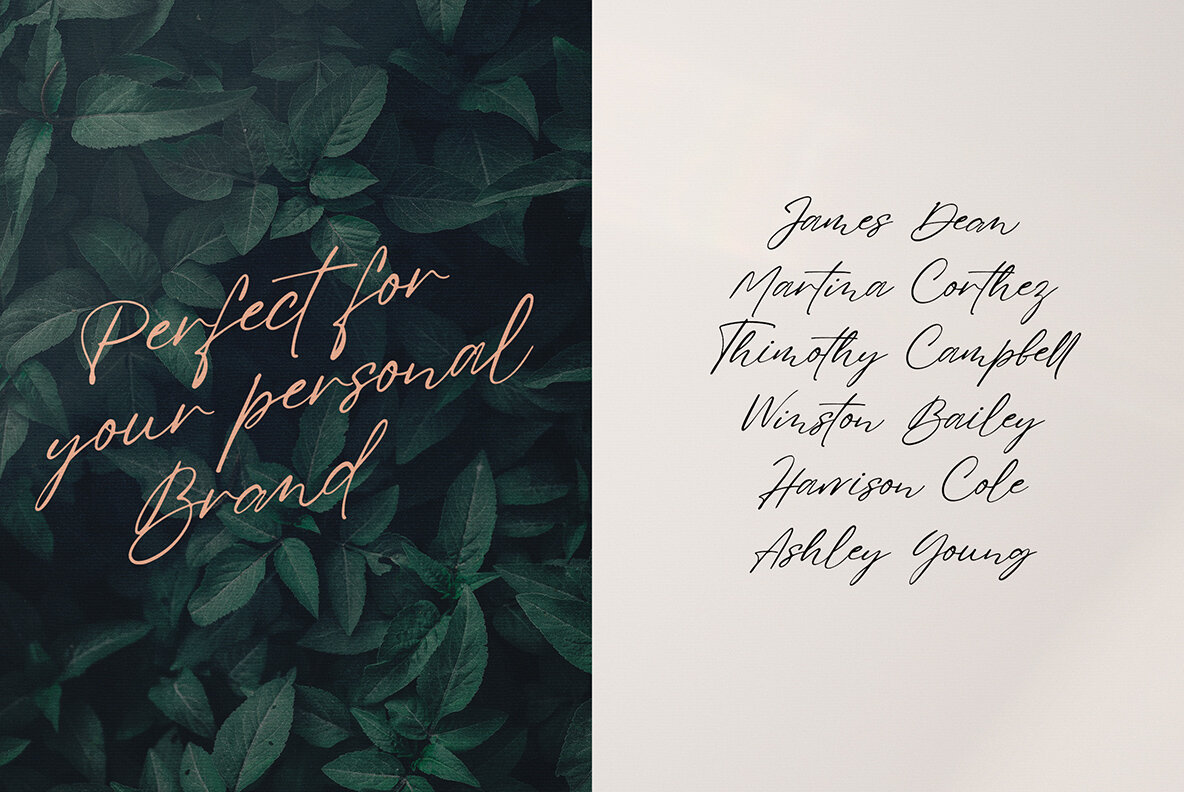 Perfect for
your personal
Brand
James Dean
Martina Corthez
Thimothy Campbell
Winston Bailey
Harrison Cole
Ashley Young